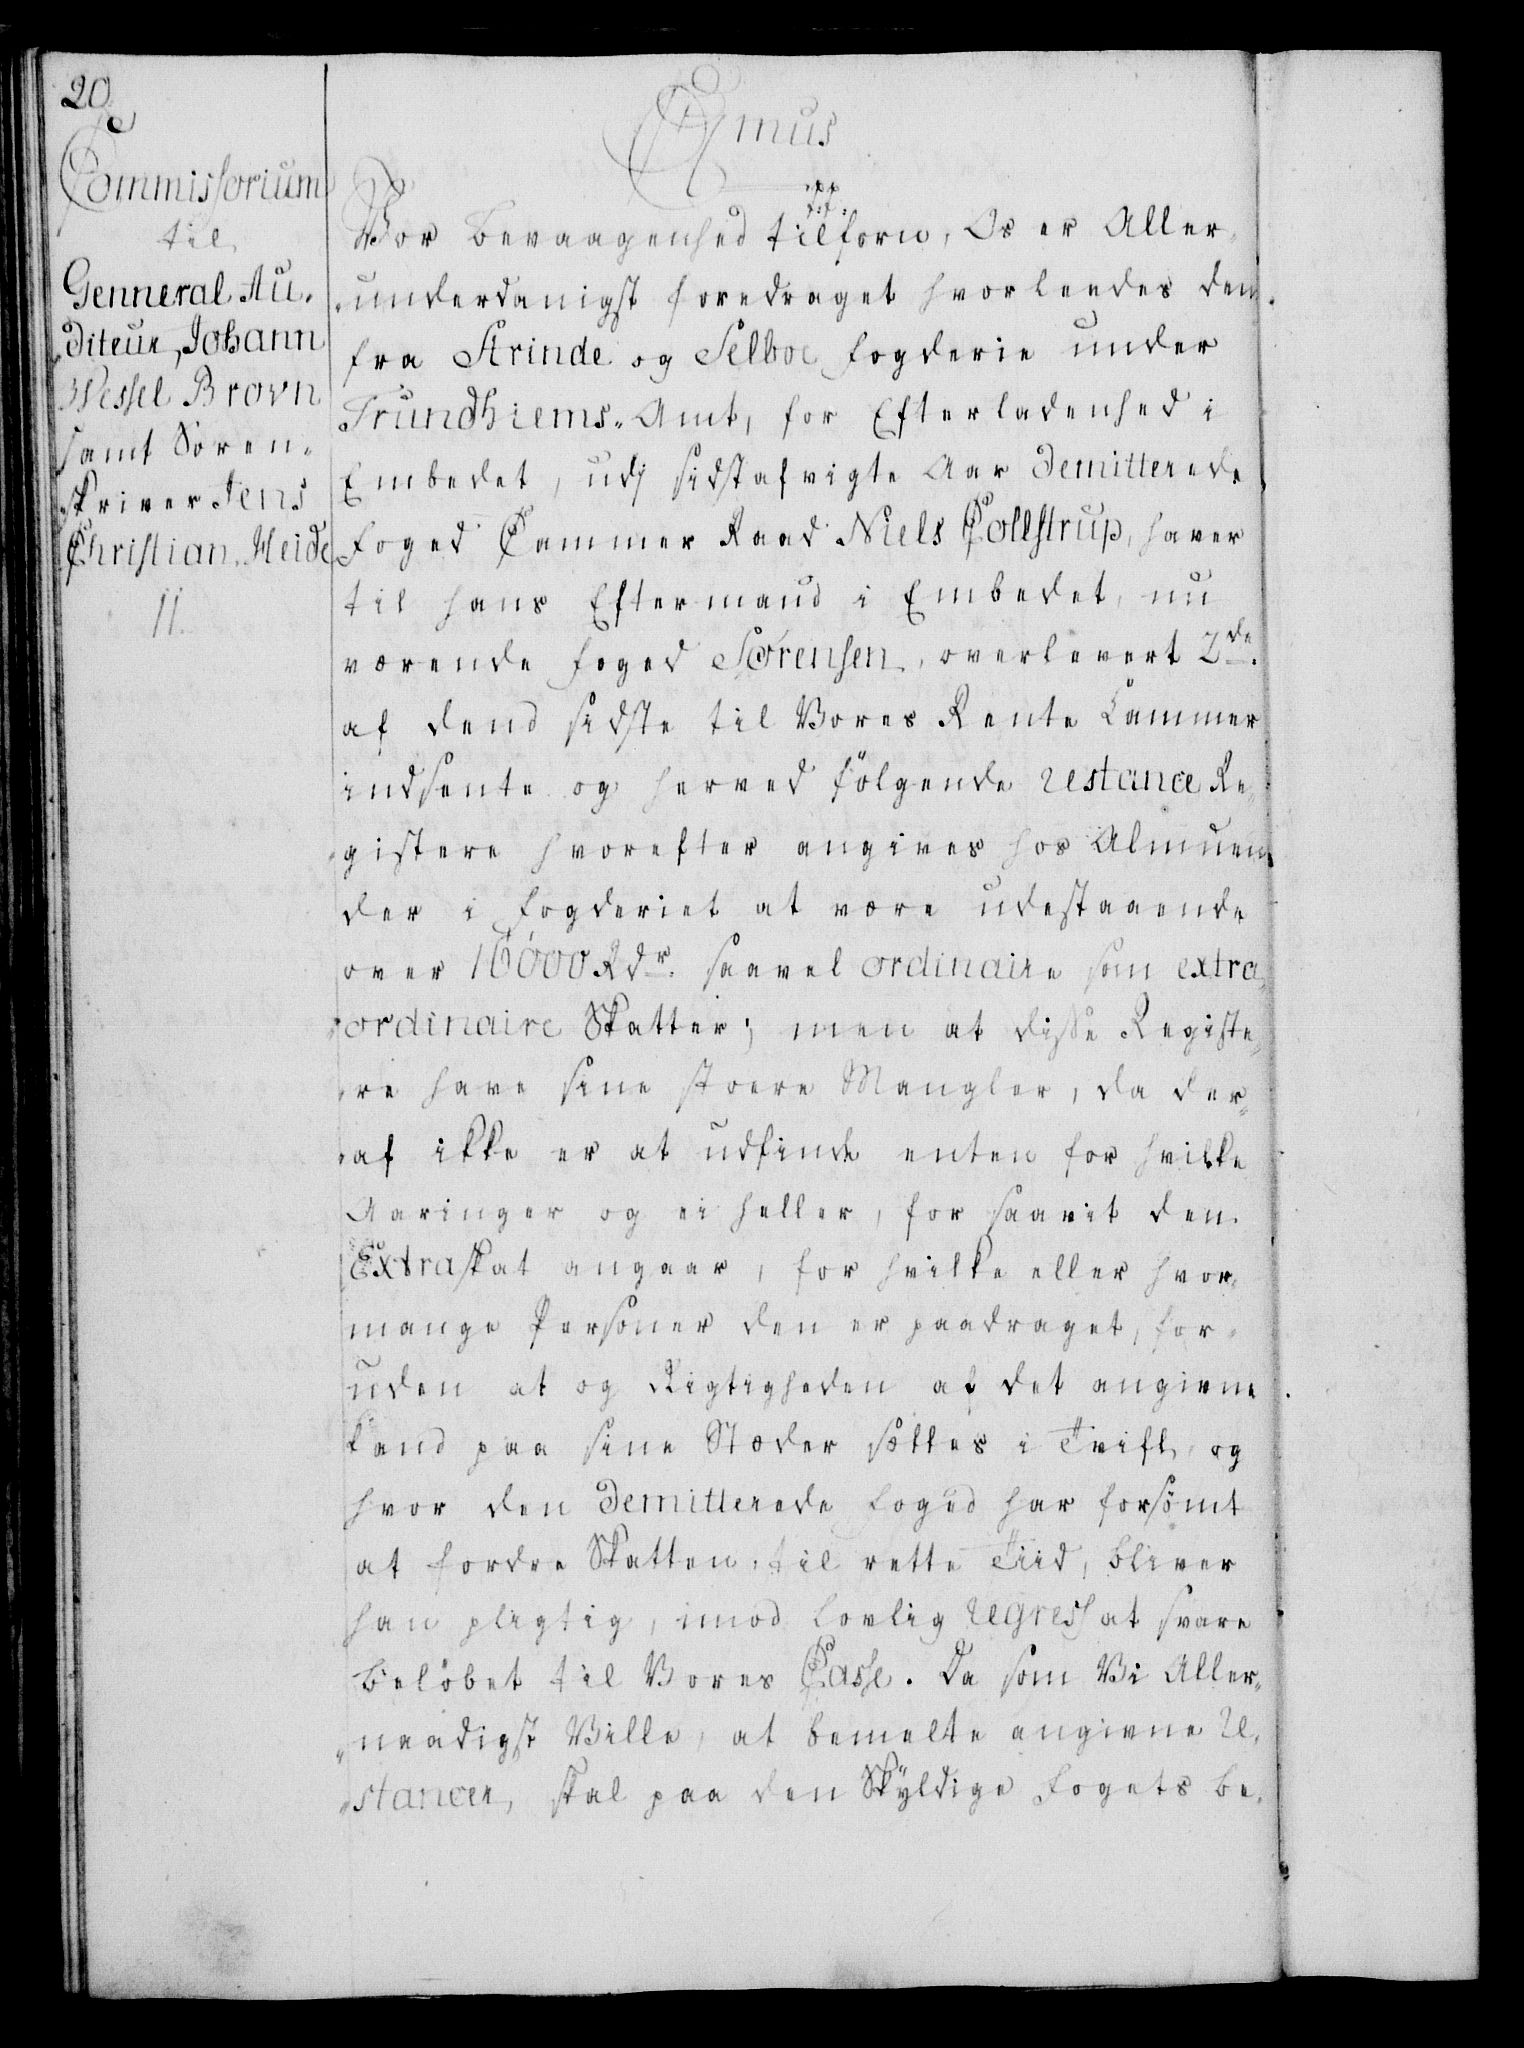 20.
Commissorium
til
Genneral Au-
diteur, Johann
Wessel Brovn
samt Soren-
skriver Jens
Christian Heide
11.
C7mus
pp.
Vor bevaagenhed tilforn, Os er Aller-
underdanigst foredraget hvorleedes den
fra Strinde og Selboe fogderie under
Trundhiems-Amt, for Efterladenhed i
Embedet, udj sidstafvigte Aar demitterede
foged Cammer Raad Niels Collstrup, haver
til hans Eftermand i Embedet, nu
værende foged Sørensen, overlevert 2de
af dend sidste til Vores Rente Cammer
indsente og herved fölgende restance Re-
gistere hvorefter angives hos Almuen
der i fogderiet at være udestaaende
over 16000 Rdr. saavel ordinaire som extra
ordinaire Skatter; men at disse Registe-
re have sine stoere Mangler, da der-
af ikke er at udfinde enten for hvilke
Aaringer og ei heller, for saavit den
Extraskat angaar, for hvilke eller hvor-
mange Personer den er paadraget, for-
uden at og Rigtigheden af det angivne
kand paa sine Stæder sættes i Tvifl, og
hvor den demitterede foged har forsömt
at fordre Skatten til rette Tiid, bliver
han pligtig, imod lovlig regress at svare
belöbet til Vores Casse. Da som Vi Aller-
naadigst Ville, at bemelte angivne re-
stancer, skal paa den Skyldige fogets be-